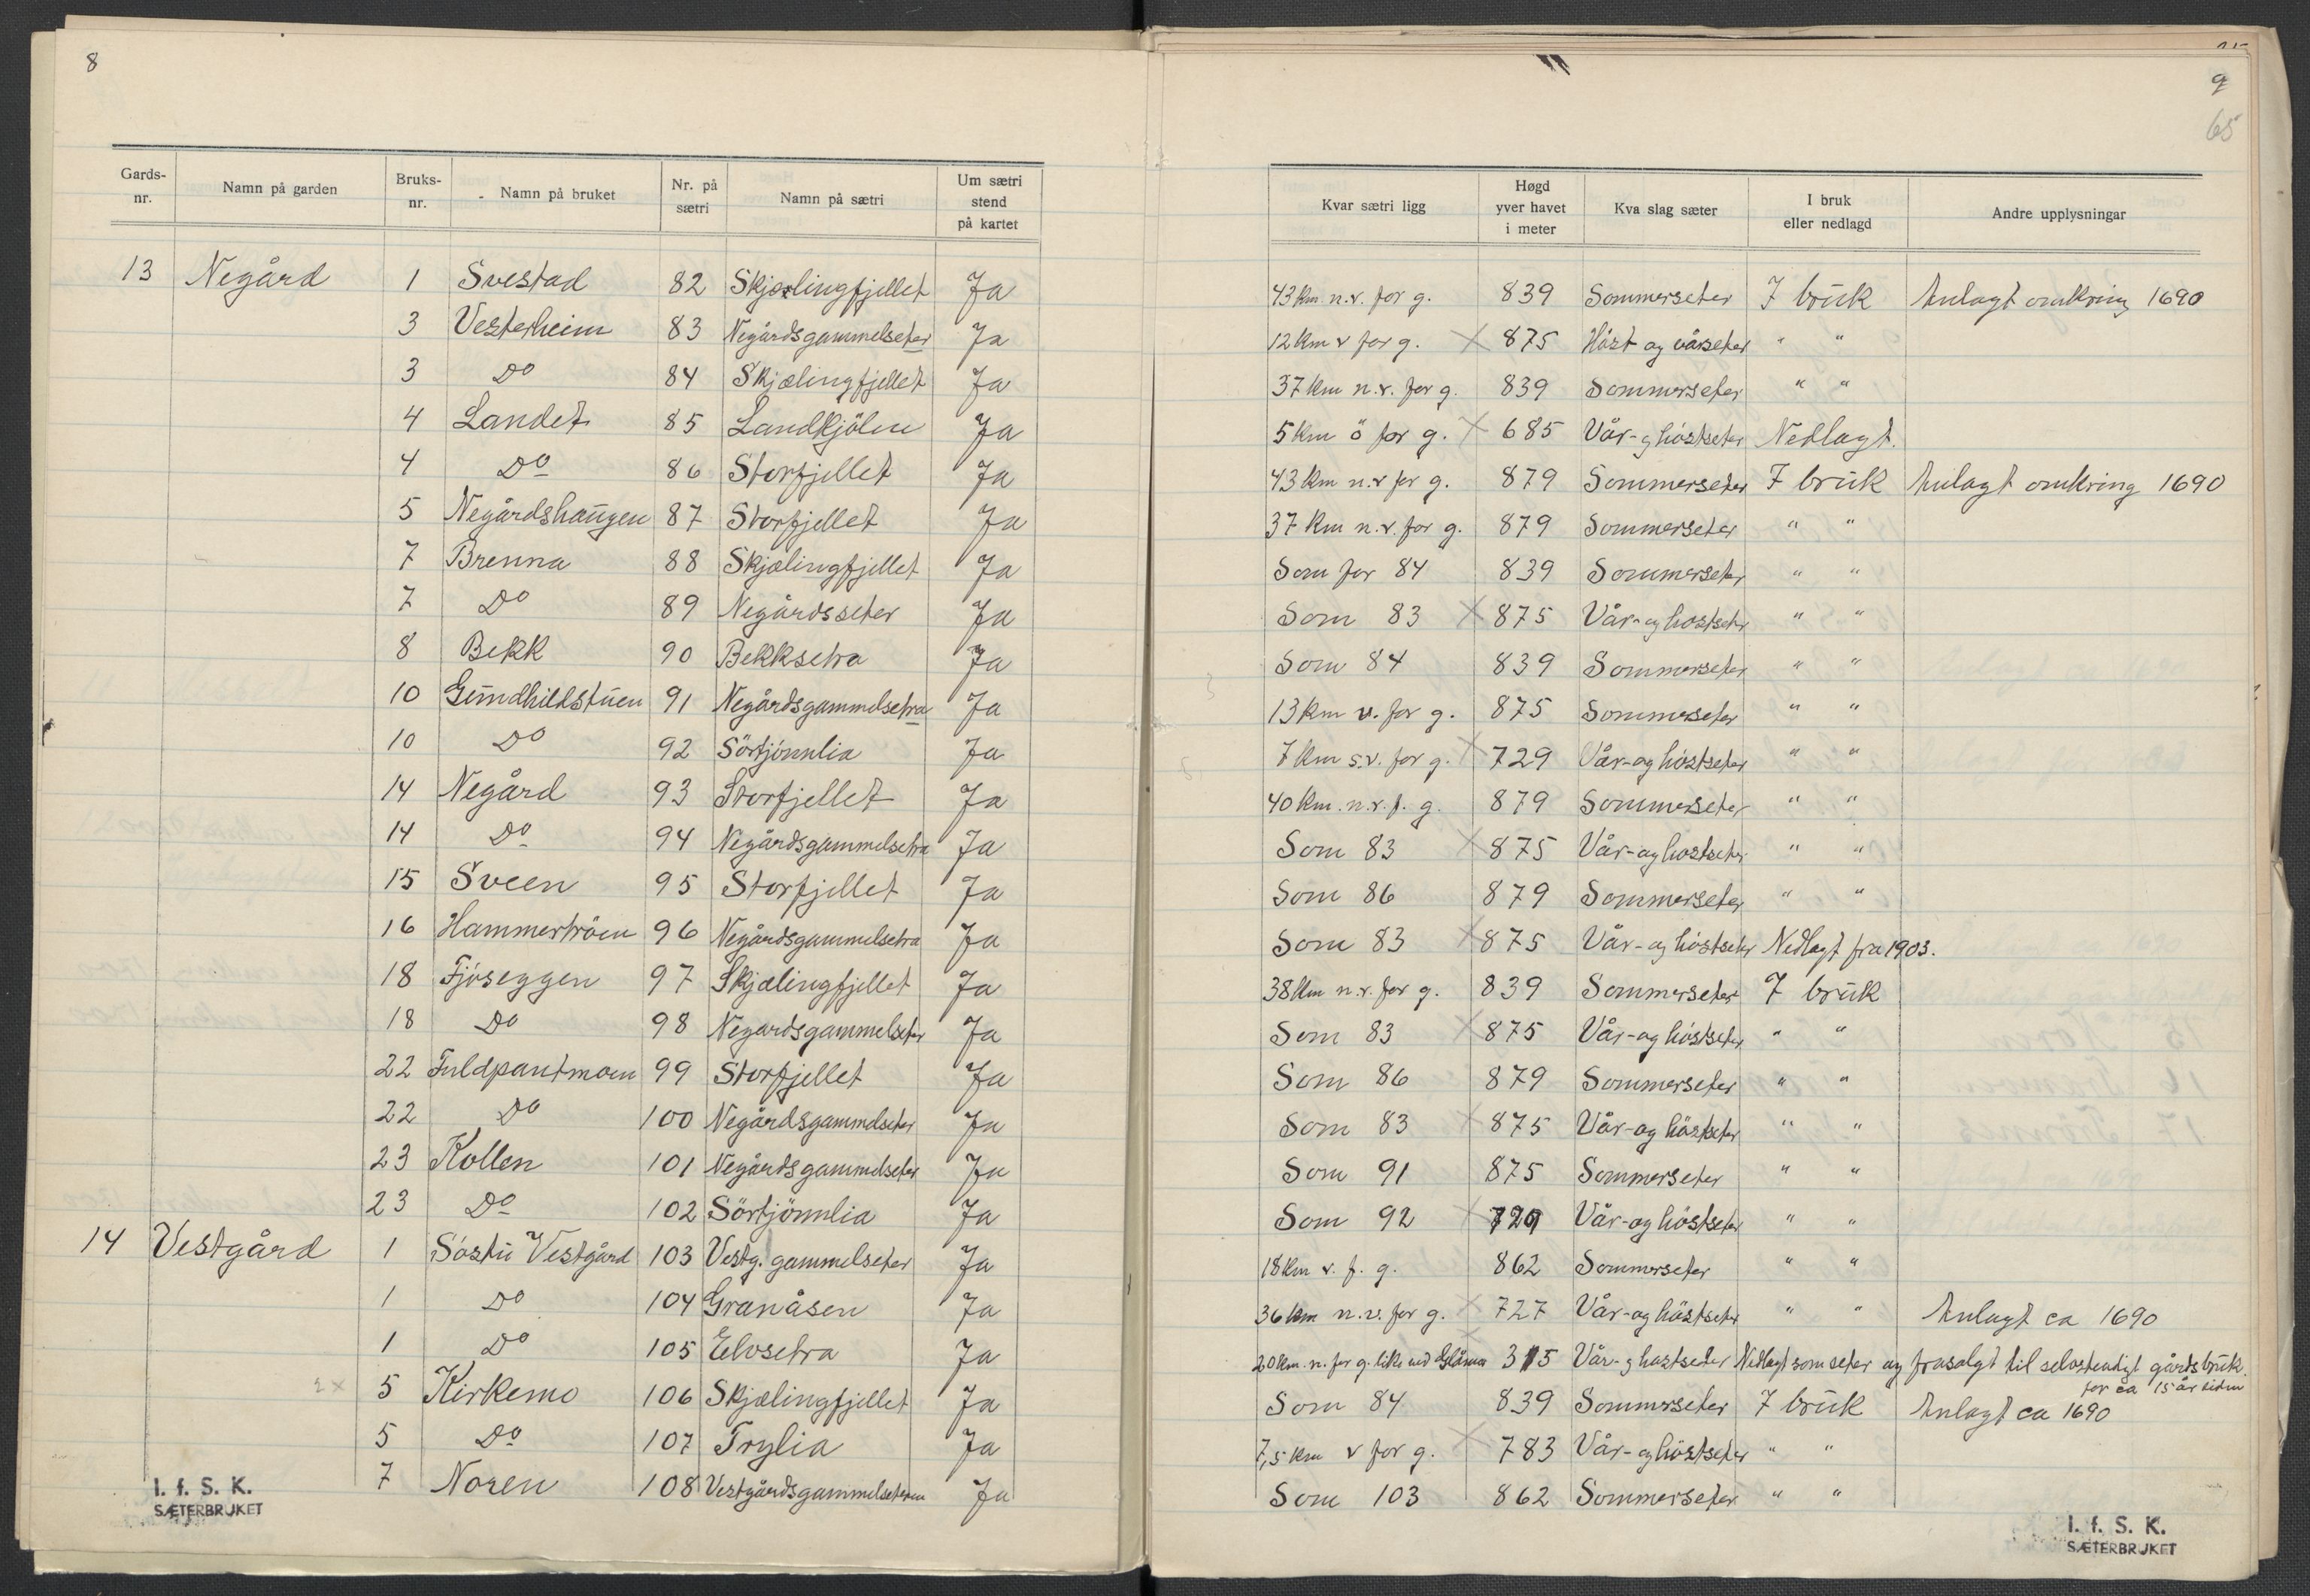 8
Gards-nr. Namn på garden Bruks-nr. Namn på bruket Nr. på sætri Namn på sætri Um sætri stend på kartet
13 Negård 1 Svestad 82 Skjælingfjellet Ja
3 Vesterheim 83 Negårdsgammelseter Ja
3 Do 84 Skjælingfjellet Ja
4 Landet 85 Landkjölen Ja
4 Do 86 Storfjellet Ja
5 Negårdshaugen 87 Storfjellet Ja
7 Brenna 88 Skjælingfjellet Ja
7 Do 89 Negårdsseter Ja
8 Bekk 90 Bekksetra Ja
10 Gundhildstuen 91 Negårdsgammelsetra Ja
10 Do 92 Sörtjönnlia Ja
14 Negård 93 Storfjellet Ja
14 Do 94 Negårdsgammelsetra Ja
15 Sveen 95 Storfjellet Ja
16 Hammertröen 96 Negårdsgammelsetra Ja
18 Fjöseggen 97 Skjælingfjellet Ja
18 Do 98 Negardsgammelseter Ja
22 Fuldpantmoen 99 Storfjellet Ja
22 Do 100 Negårdsgammelseter Ja
23 Kollen 101 Negårdsgammelseter Ja
23 Do 102 Sörtjönnlia Ja
14 Vestgård 1 Söstu Vestgård 103 Vestg. gammelseter Ja
1 Do 104 Granåsen Ja
1 Do 105 Elvsetra Ja
2 x 5 Kirkemo 106 Skjælingfjellet Ja
5 Do 107 Trylia Ja
7 Noren 108 Vestgårdsgammelseteren Ja
I. f. S. K.
SÆTERBRUKET
9
65
Kvar sætri ligg Høgd yver havet i meter Kva slag sæter I bruk eller nedlagd Andre upplysningar
43 km n.v. for g. 839 Sommerseter I bruk Anlagt omkring 1690
12 km v for g. x 875 Höst og vårseter " "
37 km n.v. for g. 839 Sommerseter " "
5 km ö for g. x 685 Vår- g höstseter Nedlagt.
43 km n.v for g. 879 Sommerseter I bruk Anlagt omkring 1690
37 km n.v. for g. 879 Sommerseter " "
Som for 84 839 Sommerseter " "
Som 83 x 875 Vår- og höstseter " "
Som 84 839 Sommerseter " "
13 km v. for g. 875 Sommerseter " "
7 km s.v. for g. x 729 Vår- og höstseter " "
40 km. n.v. f. g. 879 Sommerseter " "
Som 83 x 875 Vår- og höstseter " "
Som 86 879 Sommerseter " "
Som 83 x 875 Vår- og höstseter Nedlagt fra 1903.
38 km n.v. for g. 839 Sommerseter I bruk
Som 83 x 875 Vår- og höstseter " "
Som 86 879 Sommerseter " "
Som 83 x 875 Vår- og höstseter " "
Som 91 875 Sommerseter " "
Som 92 x 729 Vår- og höstseter " "
18 km v. f. g. 862 Sommerseter " "
36 km n.v. for g. x 727 Vår- og höstseter " " Anlagt ca 1690
20 km. n. for g. like ved Glåma 315 Vår- g høstseter Nedlagt som seter og frasolgt til selvstendigt gårdsbruk.
for ca 15 år siden
Som 84 839 Sommerseter I bruk Anlagt ca 1690
7,5 km v for g. x 783 Vår- og höstseter " "
Som 103 862 Sommerseter " "
I. f. S. K.
SÆTERBRUKET